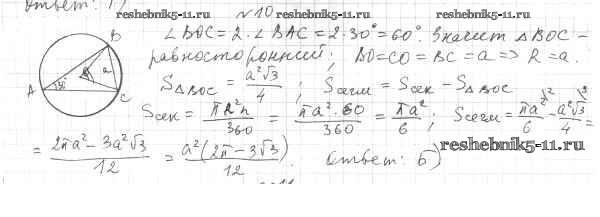 Ответ: 1)
www.reshebnik5-11.ru
№10
∠BOC = 2·∠BAC = 2·30° = 60°. Значит △BOC –
равносторонний; BO=CO=BC=a => R=a.
S△BOC = a²√3/4 ; Sсегм = Sсек - S△BOC
Sсек = πR²n/360 = πa²·60/360 = πa²/6 ; Sсегм = πa²/6 - a²√3/4 =
= 2πa² - 3a²√3/12 = a²(2π - 3√3)/12. Ответ: Б)
www.reshebnik5-11.ru
B
30°
a
A
C